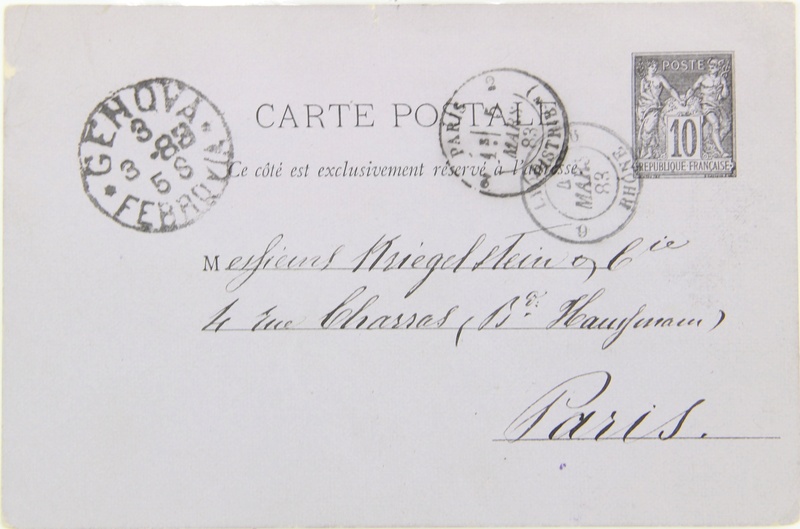 CARTE POSTALE
Ce côté est exclusivement réservé à l'adresse.
POSTE
10
RÉPUBLIQUE FRANÇAISE
GENOVA
3
83
3 5 S
FERROVIA
PARIS
2
5
MARS
83
DISTRIB
4
MARS
83
RHÔNE
9
Messieurs Kriegelstein & Cie
4 rue Charras (Bd. Haussmann)
Paris.